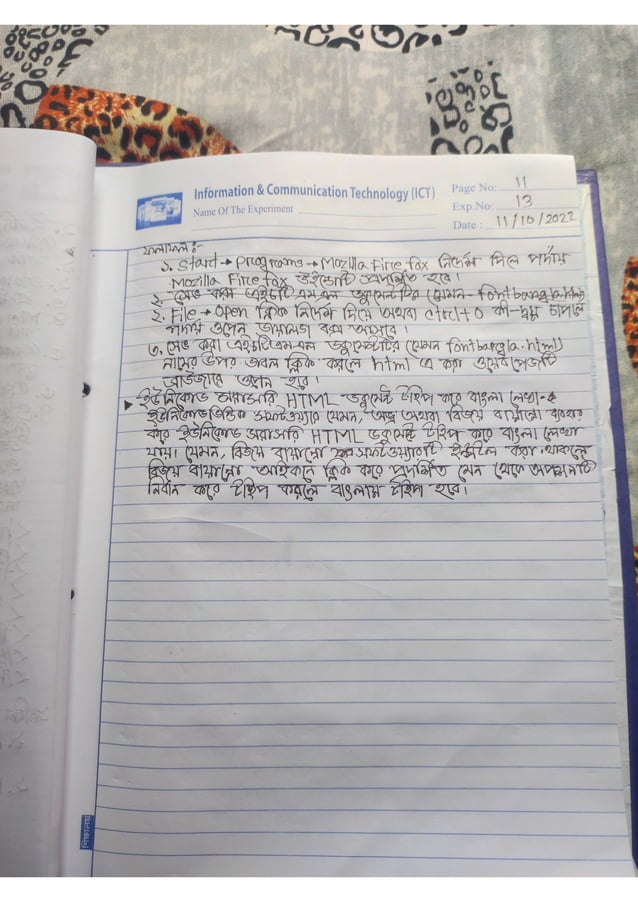 Information & Communication Technology (ICT)
Name Of The Experiment
Page No: 11
Exp.No: 13
Date : 11/10/2022
ফলাফল:-
১. Start → Programs → Mozilla Fire fox নির্দেশ দিলে পর্দায়
Mozilla Fire fox উইন্ডোটি প্রদর্শিত হবে।
২. সেভ করা এইচটিএমএল ডকুমেন্টটির যেমন- fontbangla.html
২. File → Open ক্লিক নির্দেশ দিয়ে অথবা ctrl+o কী-দ্বয় চাপলে
পর্দায় ওপেন ডায়ালগ বক্স আসবে।
৩. সেভ করা এইচটিএমএল ডকুমেন্টটির যেমন fontbangla.html)
নামের উপর ডাবল ক্লিক করলে html এ করা ওয়েব পেজটি
ব্রাউজারে ওপেন হবে।
▶ ইউনিকোড সরাসরি HTML ডকুমেন্ট টাইপ করে বাংলা লেখা-ঃ
ইউনিকোডভিত্তিক সফটওয়্যার যেমন, অভ্র অথবা বিজয় বায়ান্নো ব্যবহার
করে ইউনিকোড সরাসরি HTML ডকুমেন্ট টাইপ করে বাংলা লেখা
যায়। যেমন, বিজয় বায়ান্নো সফটওয়্যারটি ইন্সটল করা থাকলে
বিজয় বায়ান্নো আইকনে ক্লিক করে প্রদর্শিত মেনু থেকে অপশনটি
নির্বাচন করে টাইপ করলে বাংলায় টাইপ হবে।